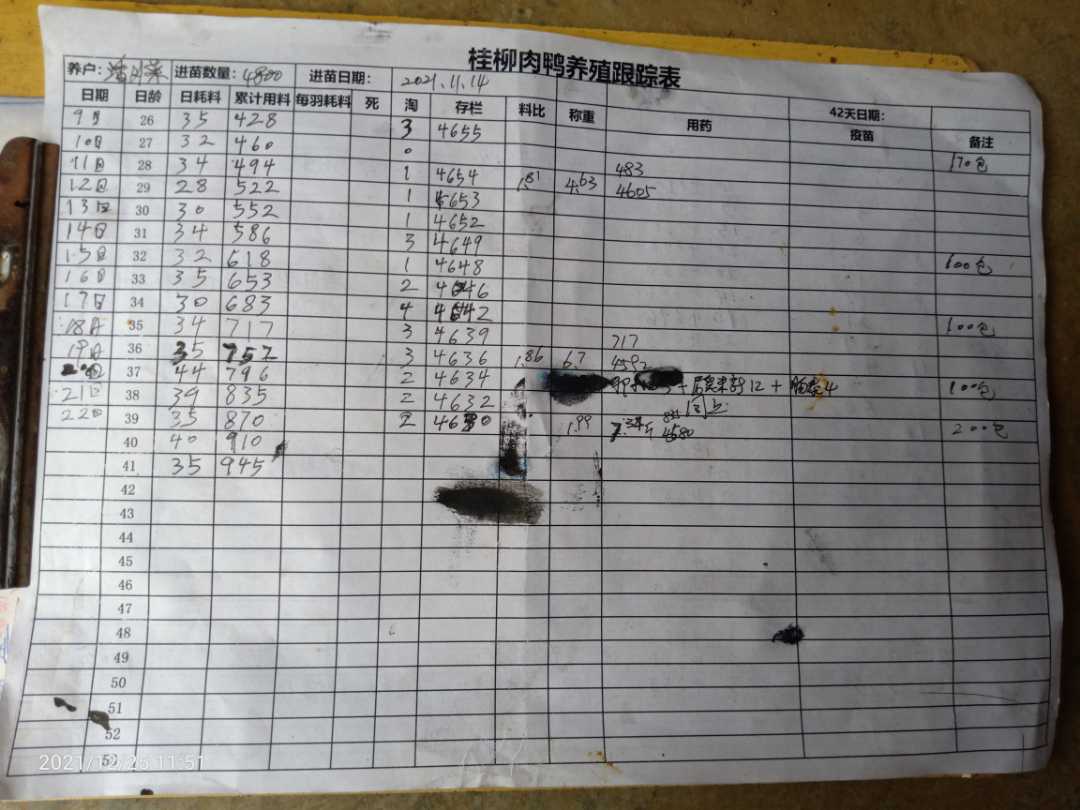 桂柳肉鸭养殖跟踪表
养户: 进苗数量: 4800 进苗日期: 2021.11.14
日期 日龄 日耗料 累计用料 每羽耗料 死 淘 存栏 料比 称重 用药 42天日期: 疫苗 备注
9日 26 35 428 3 4655
10日 27 32 460 0 170包
11日 28 34 494 1 4654 483
12日 29 28 522 1 4653 1.81 4.63 4605
13日 30 30 552 1 4652
14日 31 34 586 3 4649
15日 32 32 618 1 4648 100包
16日 33 35 653 2 4646
17日 34 30 683 4 4642
18日 35 34 717 3 4639 717 100包
19日 36 35 752 3 4636 1.86 6.7 4592
20日 37 44 796 2 4634 12 + 4 100包
21日 38 39 835 2 4632 同上
22日 39 35 870 2 4630 1.99 7.34斤 4580 200包
40 40 910
41 35 945
42
43
44
45
46
47
48
49
50
51
52
53
2021/12/25 11:51